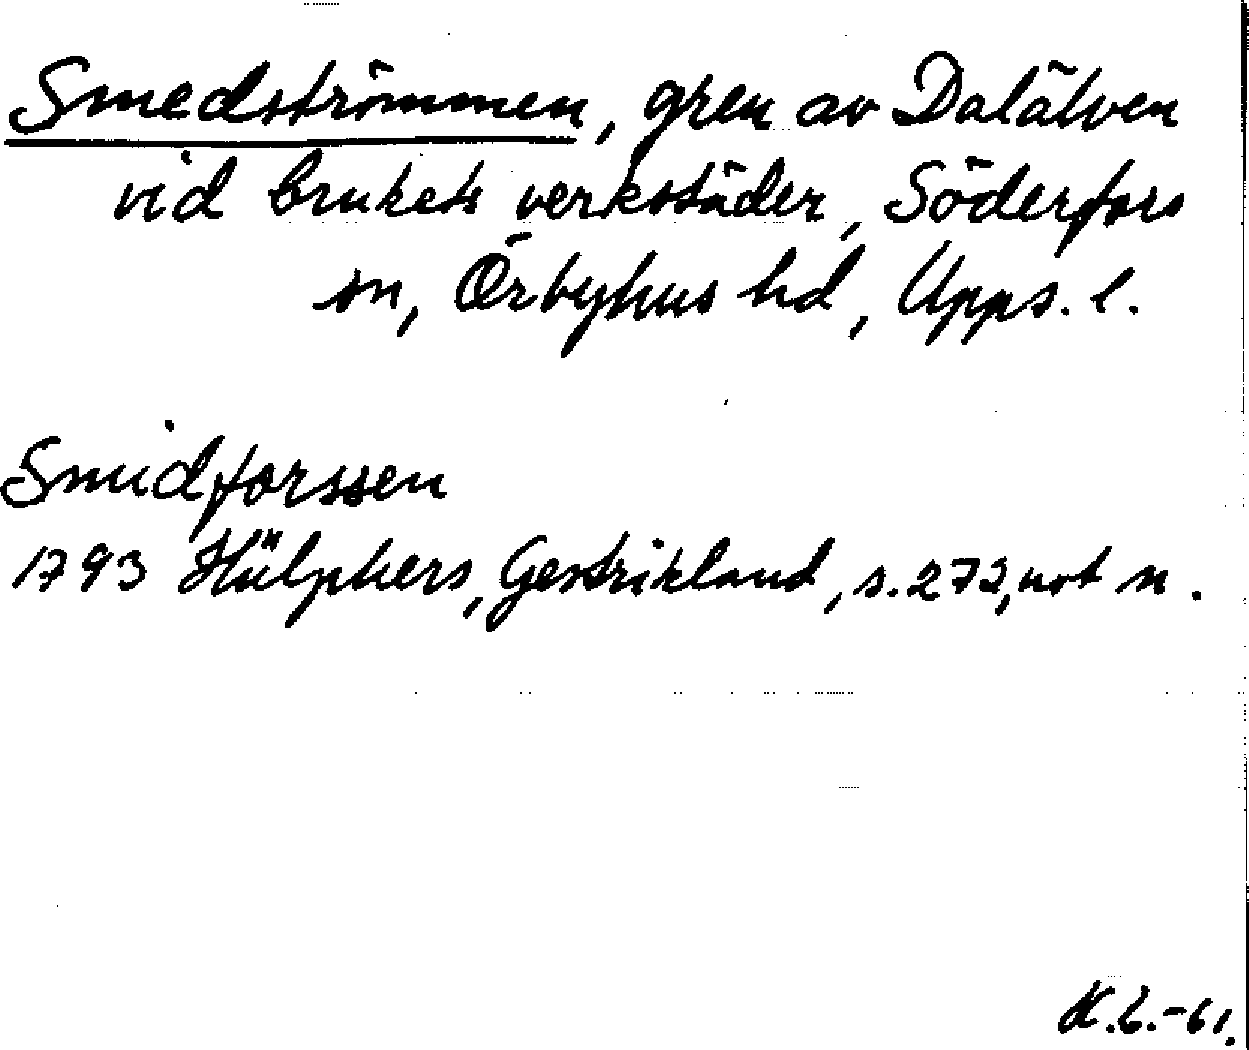 Smedströmmen, gren av Dalälven
vid brukets verkstäder, Söderfors
sn, Örbyhus hd, Upps. l.
Smidforssen
1793 Hülphers, Gestrikland, s. 272, not n.